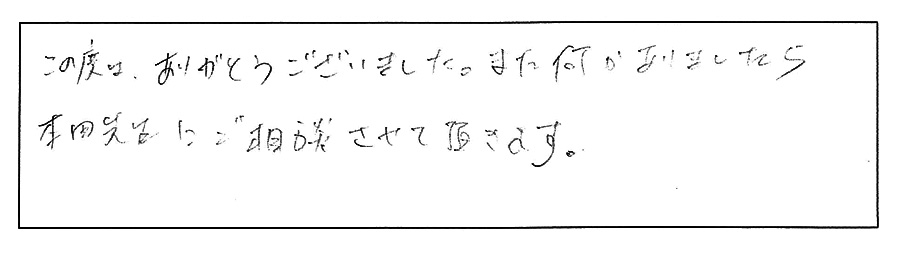 この度は、ありがとうございました。また何かありましたら
本田先生にご相談させて頂きます。